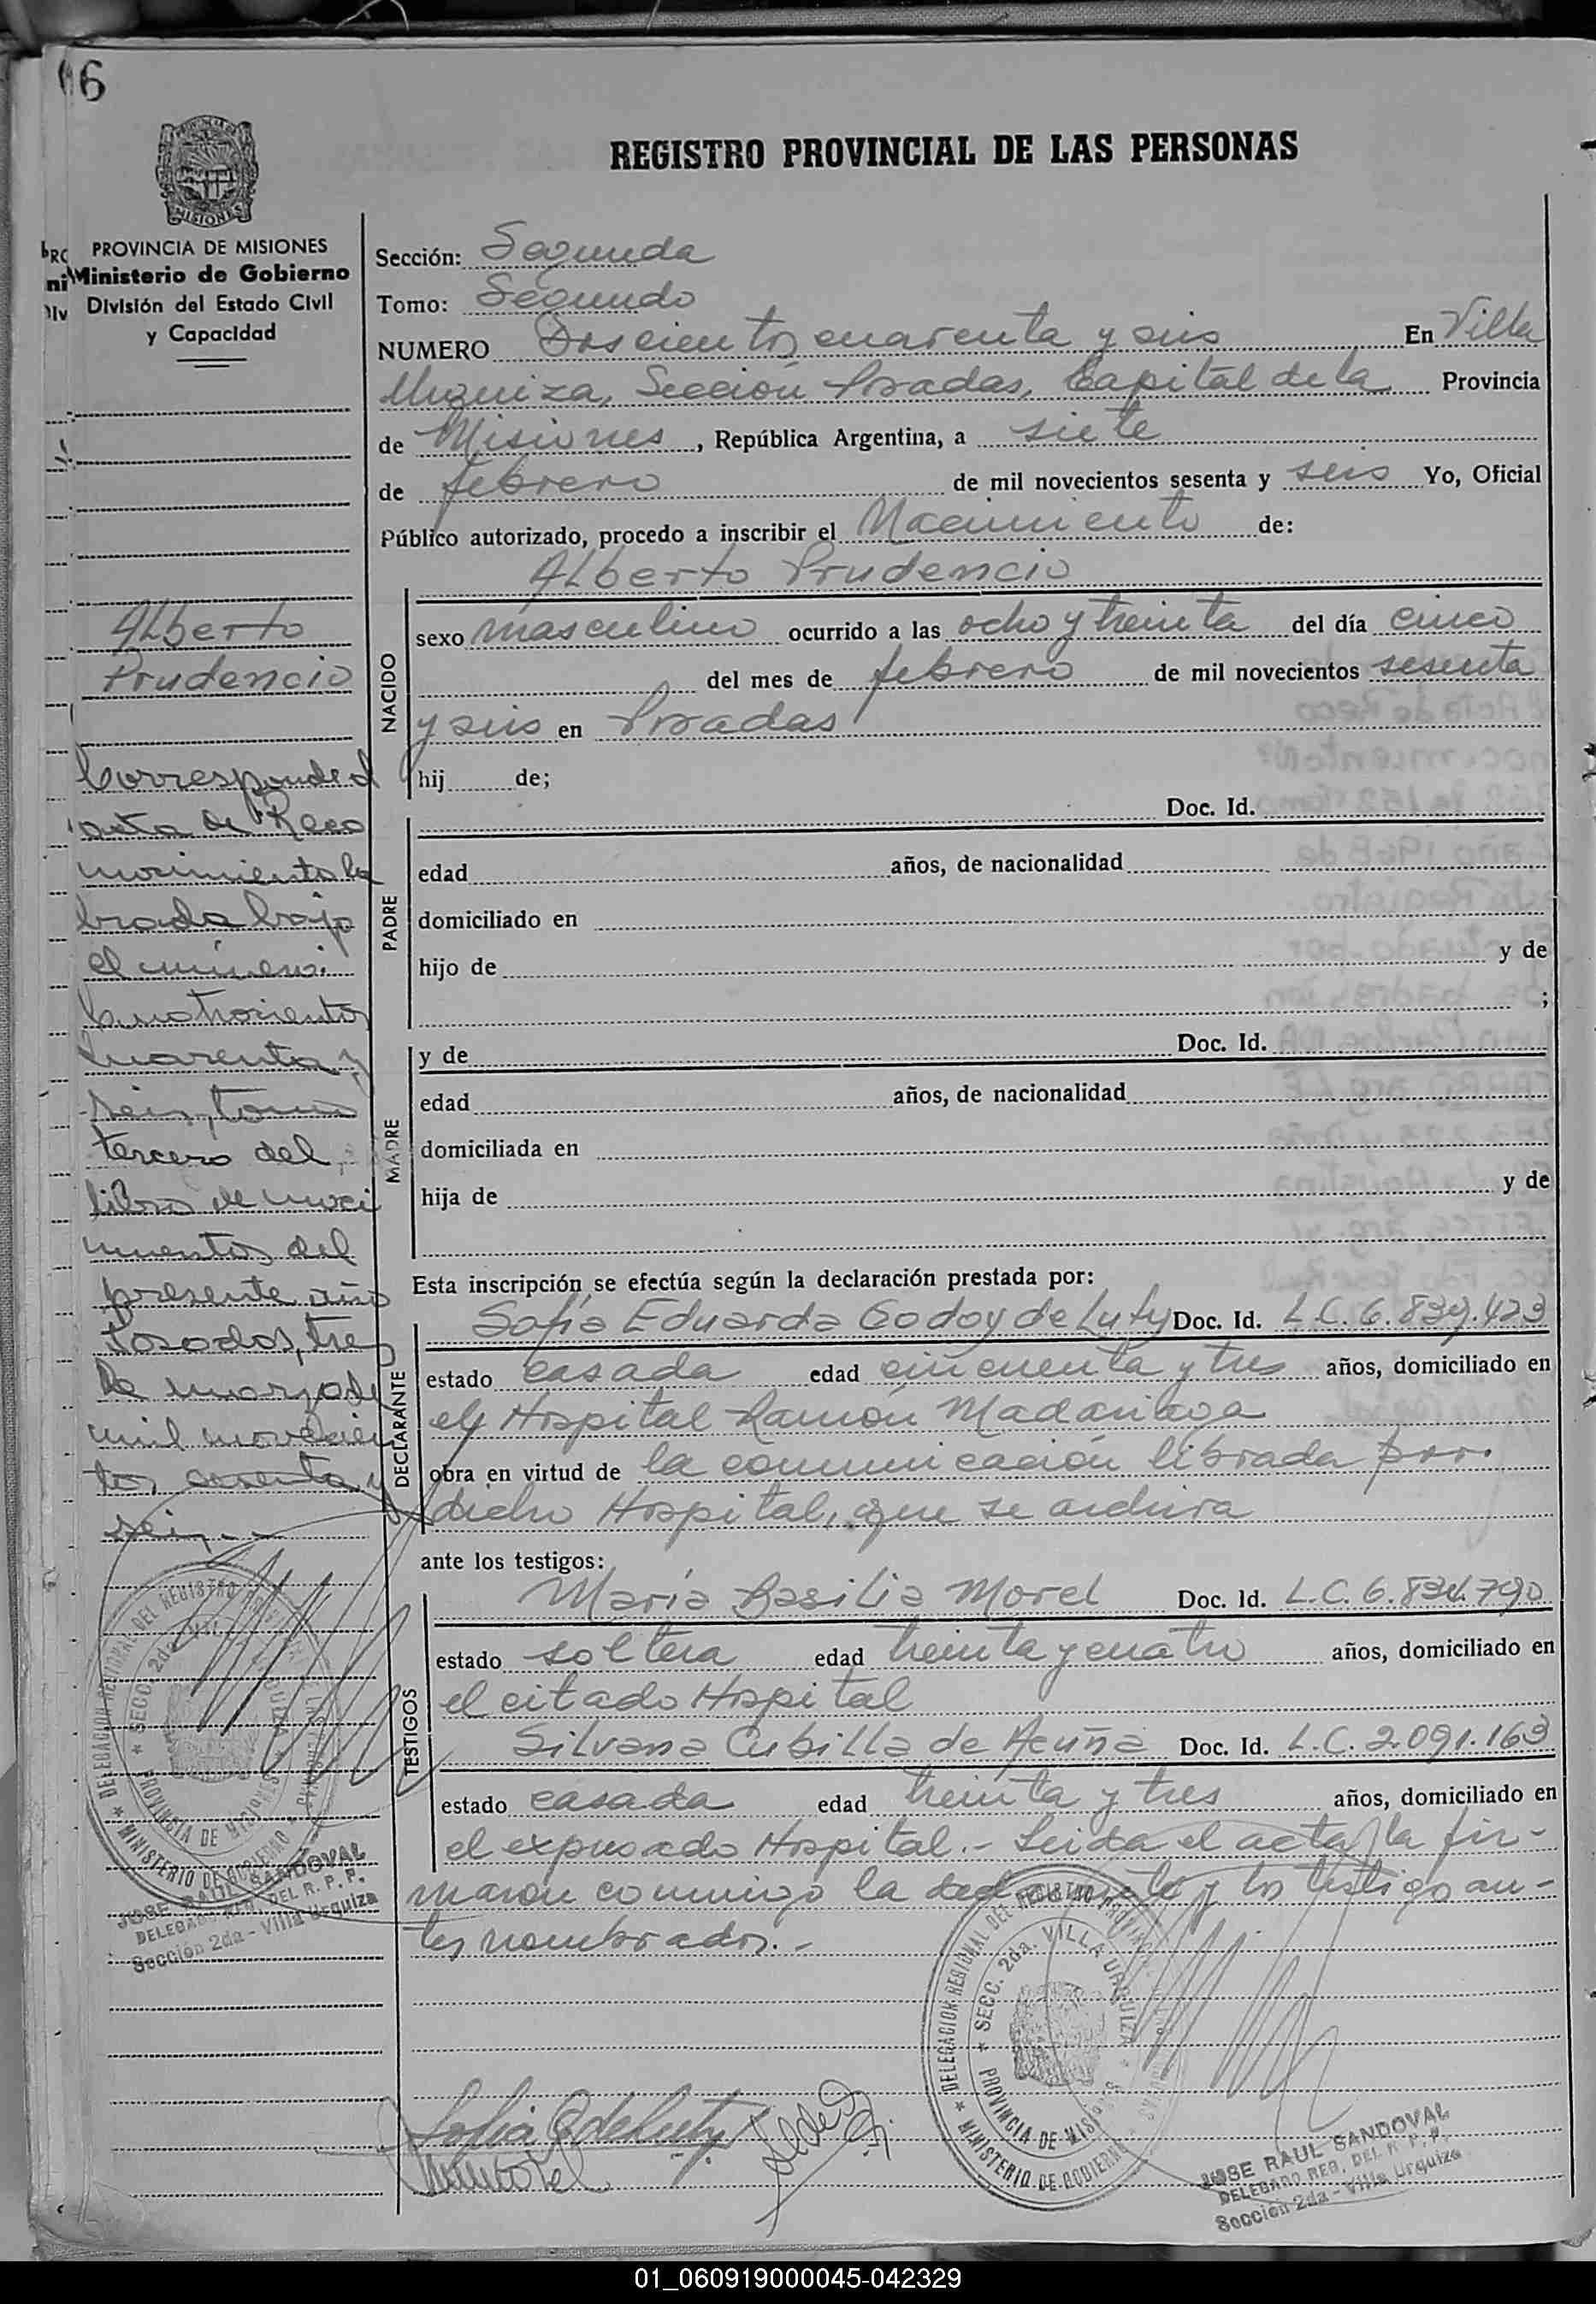 6
REGISTRO PROVINCIAL DE LAS PERSONAS
MISIONES
PROVINCIA DE MISIONES
Ministerio de Gobierno
División del Estado Civil
y Capacidad
Alberto
Prudencio
Corresponde al
acta de Reco
nocimiento la
brada bajo
el número
Cuatrocientos
cuarenta y
seis, tomo
tercero del
libro de naci
mientos del
presente año
Posadas, tres
de marzo de
mil novecien
tos sesenta y
seis.-
DELEGACION REGIONAL DEL REGISTRO PROVINCIAL DE LAS PERSONAS
SECC. 2da. VILLA URQUIZA
PROVINCIA DE MISIONES
MINISTERIO DE GOBIERNO
JOSE RAUL SANDOVAL
DELEGADO REG. DEL R. P. P.
Sección 2da - Villa Urquiza
Sección: Segunda
Tomo: Segundo
NUMERO Doscientos cuarenta y seis En Villa
Urquiza, Sección Posadas, Capital de la Provincia
de Misiones, República Argentina, a siete
de febrero de mil novecientos sesenta y seis Yo, Oficial
Público autorizado, procedo a inscribir el Nacimiento de:
Alberto Prudencio
NACIDO
sexo masculino ocurrido a las ocho y treinta del día cinco
del mes de febrero de mil novecientos sesenta
y seis en Posadas
hij de;
PADRE
Doc. Id.
edad años, de nacionalidad
domiciliado en
hijo de y de
;
MADRE
y de Doc. Id.
edad años, de nacionalidad
domiciliada en
hija de y de
Esta inscripción se efectúa según la declaración prestada por:
DECLARANTE
Sofia Eduarda Godoy de Luty Doc. Id. L.C. 6.839.423
estado casada edad cincuenta y tres años, domiciliado en
el Hospital Ramón Madariaga
obra en virtud de la comunicación librada por
dicho Hospital, que se archiva
ante los testigos:
TESTIGOS
María Basilia Morel Doc. Id. L.C. 6.834.790
estado soltera edad treinta y cuatro años, domiciliado en
el citado Hospital
Silvana Cubilla de Acuña Doc. Id. L.C. 2.091.163
estado casada edad treinta y tres años, domiciliado en
el expresado Hospital.- Leida el acta, la fir-
maron conmigo la declarante y los testigos an-
tes nombrados.-
DELEGACION REGIONAL DEL REGISTRO PROVINCIAL DE LAS PERSONAS
SECC. 2da. VILLA URQUIZA
PROVINCIA DE MISIONES
MINISTERIO DE GOBIERNO
Sofia G de Luty
JOSE RAUL SANDOVAL
DELEGADO REG. DEL R. P. P.
Sección 2da - Villa Urquiza
01_060919000045-042329